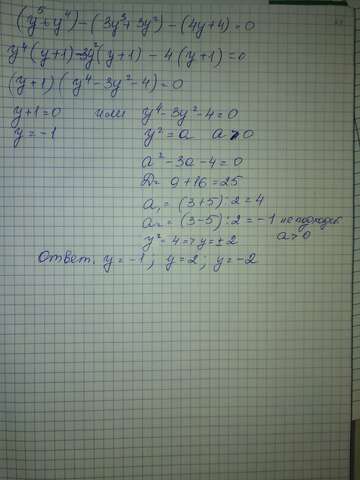 (y⁵+y⁴)-(3y³+3y²)-(4y+4)=0
y⁴(y+1)-3y²(y+1)-4(y+1)=0
(y+1)(y⁴-3y²-4)=0
y+1=0 или y⁴-3y²-4=0
y=-1 y²=a a>0
a²-3a-4=0
D=9+16=25
a₁=(3+5):2=4
a₂=(3-5):2=-1 не подходит
y²=4=>y=±2 a>0
Ответ. y=-1; y=2; y=-2